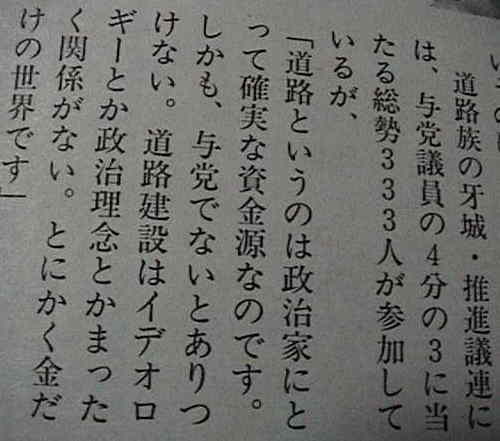 道路族の牙城・推進議連に
は、与党議員の4分の3に当
たる総勢333人が参加して
いるが、
「道路というのは政治家にと
って確実な資金源なのです。
しかも、与党でないとありつ
けない。道路建設はイデオロ
ギーとか政治理念とかまった
く関係がない。とにかく金だ
けの世界です」